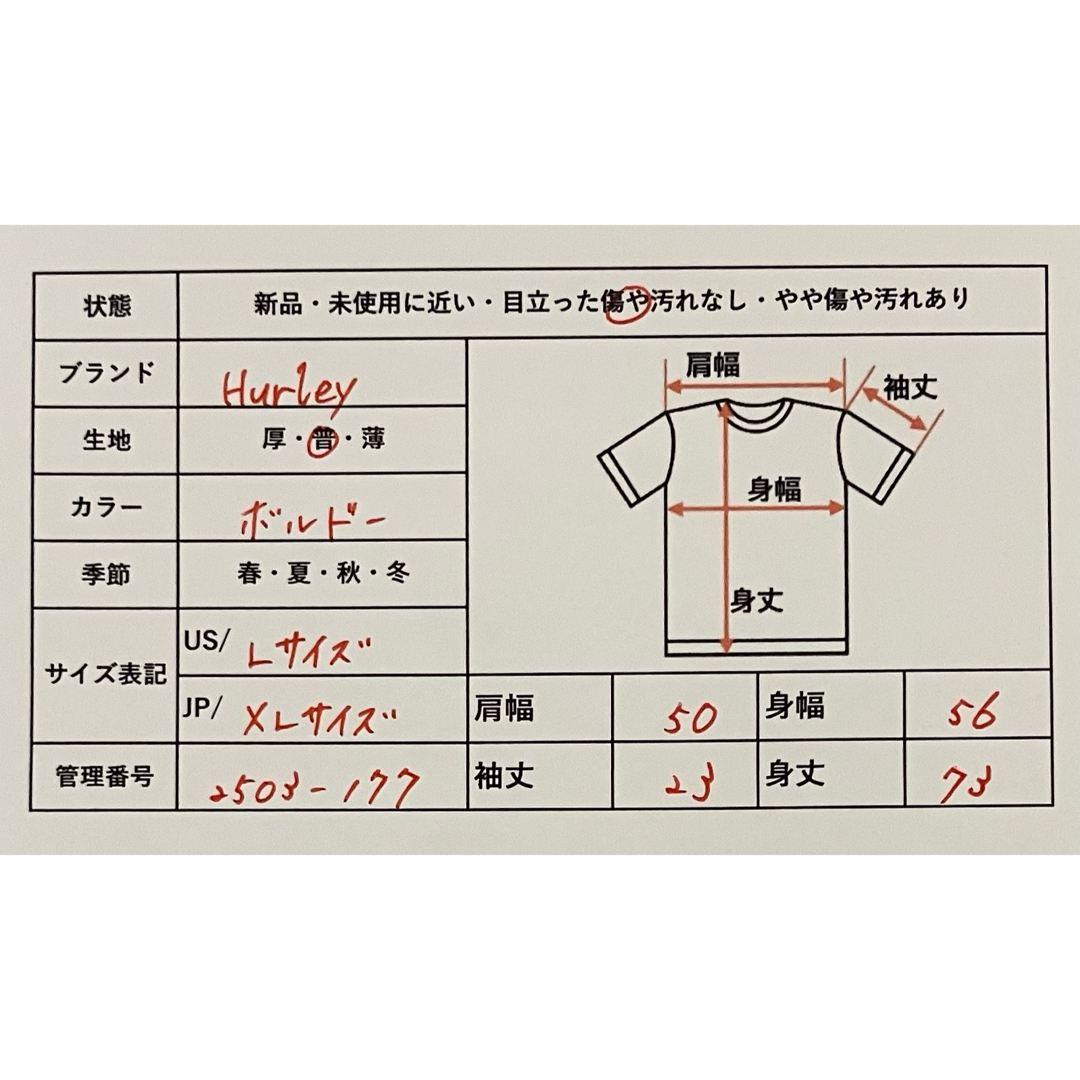 状態 新品・未使用に近い・目立った傷や汚れなし・やや傷や汚れあり
ブランド Hurley
生地 厚・普・薄
カラー ボルドー
季節 春・夏・秋・冬
サイズ表記
US/ Lサイズ
JP/ XLサイズ
管理番号 2503-177
肩幅
袖丈
身幅
身丈
肩幅 50 身幅 56
袖丈 23 身丈 73